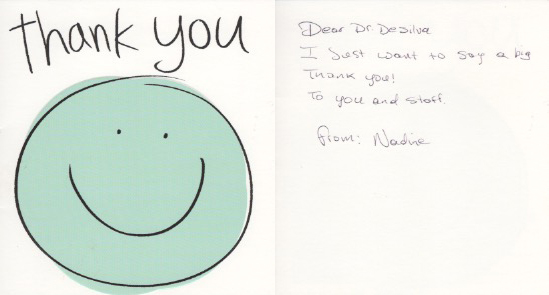 thank you
Dear Dr. DeSilva
I Just want to say a big
Thank you!
To you and staff.
From: Nadine